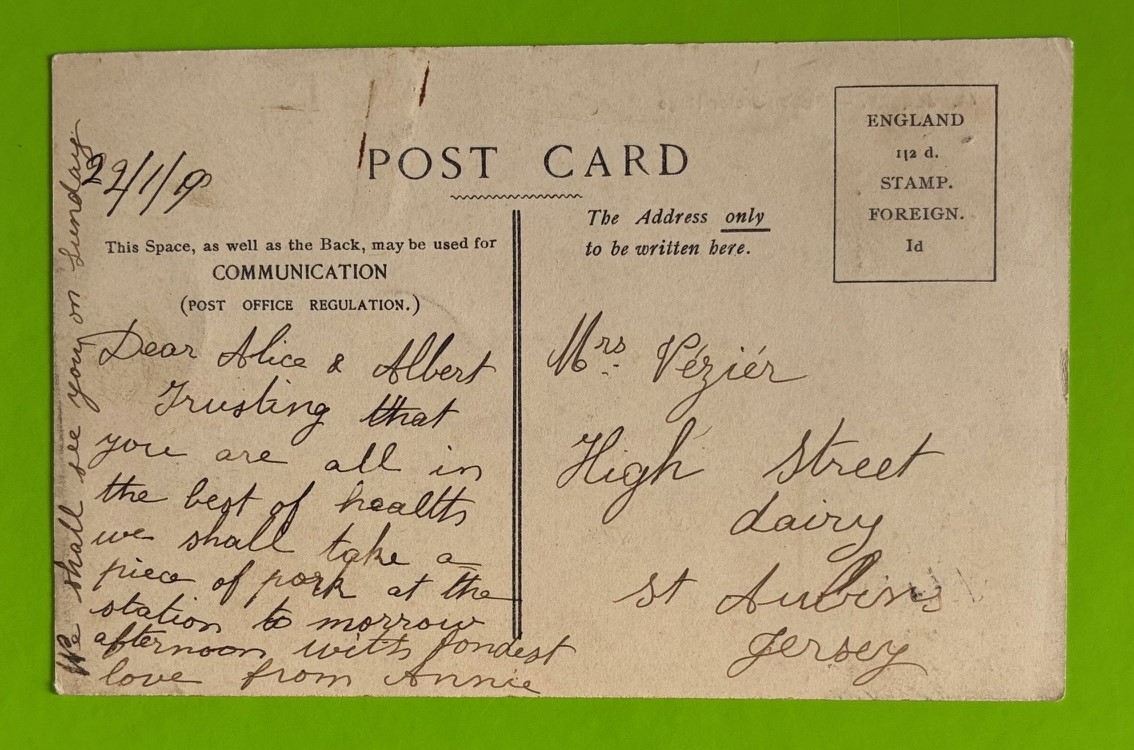 22/1/19
POST CARD
ENGLAND
1|2 d.
STAMP.
FOREIGN.
1d
This Space, as well as the Back, may be used for
COMMUNICATION
(POST OFFICE REGULATION.)
The Address only
to be written here.
Dear Alice & Albert
Trusting that
you are all in
the best of health
we shall take a
piece of pork at the
station to morrow
afternoon with fondest
love from Annie
We shall see you on Sunday
Mrs. Véziér
High Street
dairy
St Aubins
Jersey